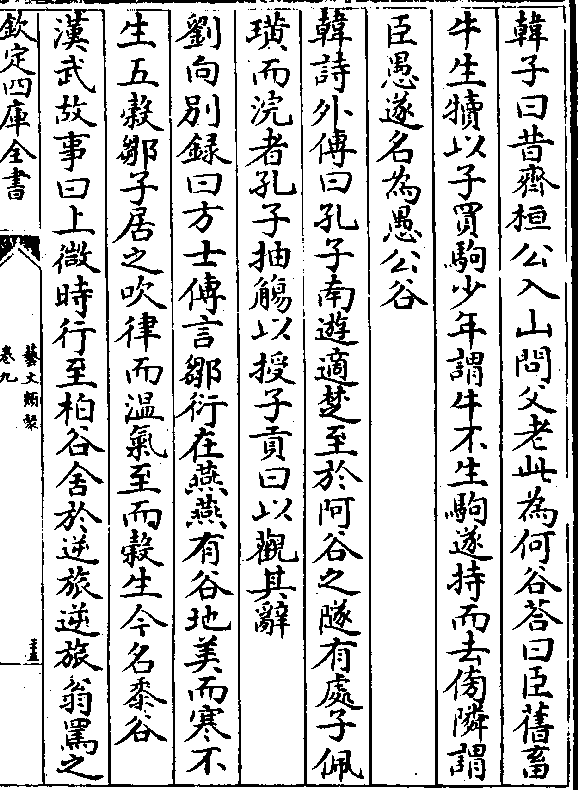 韓子曰昔齊桓公入山問父老此為何谷荅曰臣舊畜
牛生犢以子買駒少年謂牛不生駒遂持而去傍隣謂
臣愚遂名為愚公谷
韓詩外傳曰孔子南遊適楚至於阿谷之隧有處子佩
璜而浣者孔子抽觴以授子貢曰以觀其辭
劉向別録曰方士傳言鄒衍在燕燕有谷地美而寒不
生五穀鄒子居之吹律而溫氣至而穀生今名黍谷
漢武故事曰上微時行至柏谷舍於逆旅逆旅翁罵之
欽定四庫全書
藝文類聚
卷九